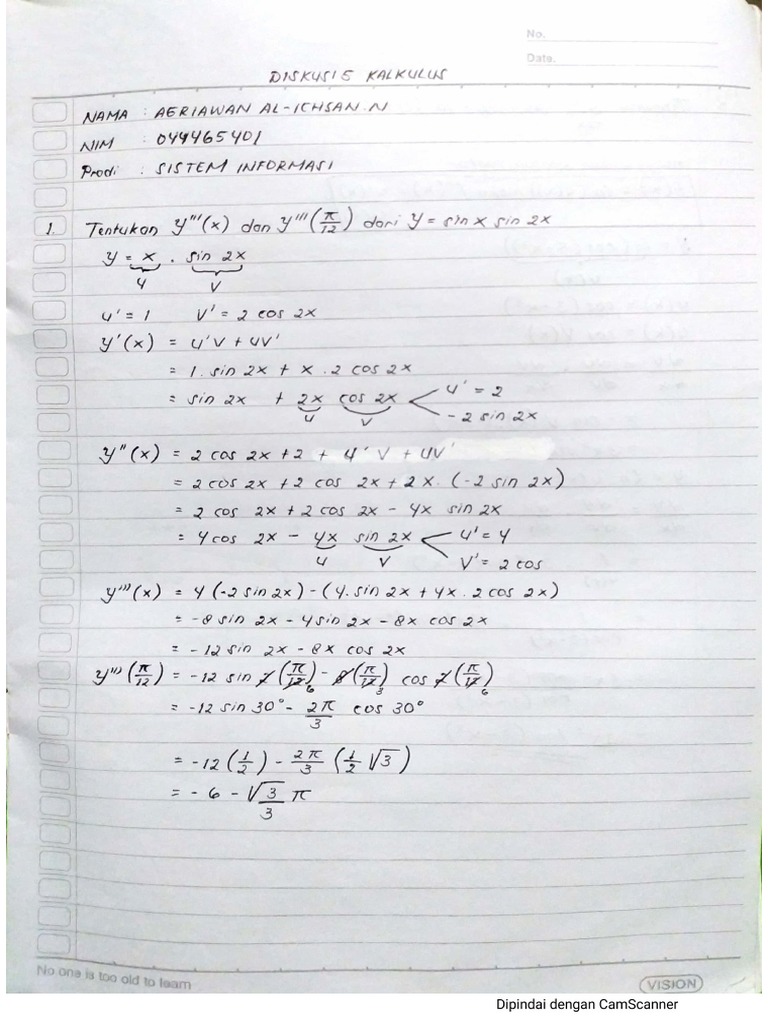 No.
Date.
DISKUSI 5 KALKULUS
NAMA : AERIAWAN AL-ICHSAN.N
NIM : 044465401
Prodi : SISTEM INFORMASI
1. Tentukan y'''(x) dan y'''(π/12) dari y = sin x sin 2x
y = x . sin 2x
u v
u' = 1 v' = 2 cos 2x
y'(x) = u'v + uv'
= 1. sin 2x + x . 2 cos 2x
= sin 2x + 2x cos 2x < u' = 2
u v - 2 sin 2x
y''(x) = 2 cos 2x + 2 + u'v + uv'
= 2 cos 2x + 2 cos 2x + 2x. (-2 sin 2x)
= 2 cos 2x + 2 cos 2x - 4x sin 2x
= 4 cos 2x - 4x sin 2x < u' = 4
u v v' = 2 cos
y'''(x) = 4 (-2 sin 2x) - (4. sin 2x + 4x . 2 cos 2x)
= -8 sin 2x - 4 sin 2x - 8x cos 2x
= -12 sin 2x - 8x cos 2x
y'''(π/12) = -12 sin 2 (π/12) 6 - 8 (π/12) 3 cos 2 (π/12) 6
= -12 sin 30° - 2π/3 cos 30°
= -12 (1/2) - 2π/3 (1/2 √3)
= - 6 - √3/3 π
No one is too old to learn
VISION
Dipindai dengan CamScanner